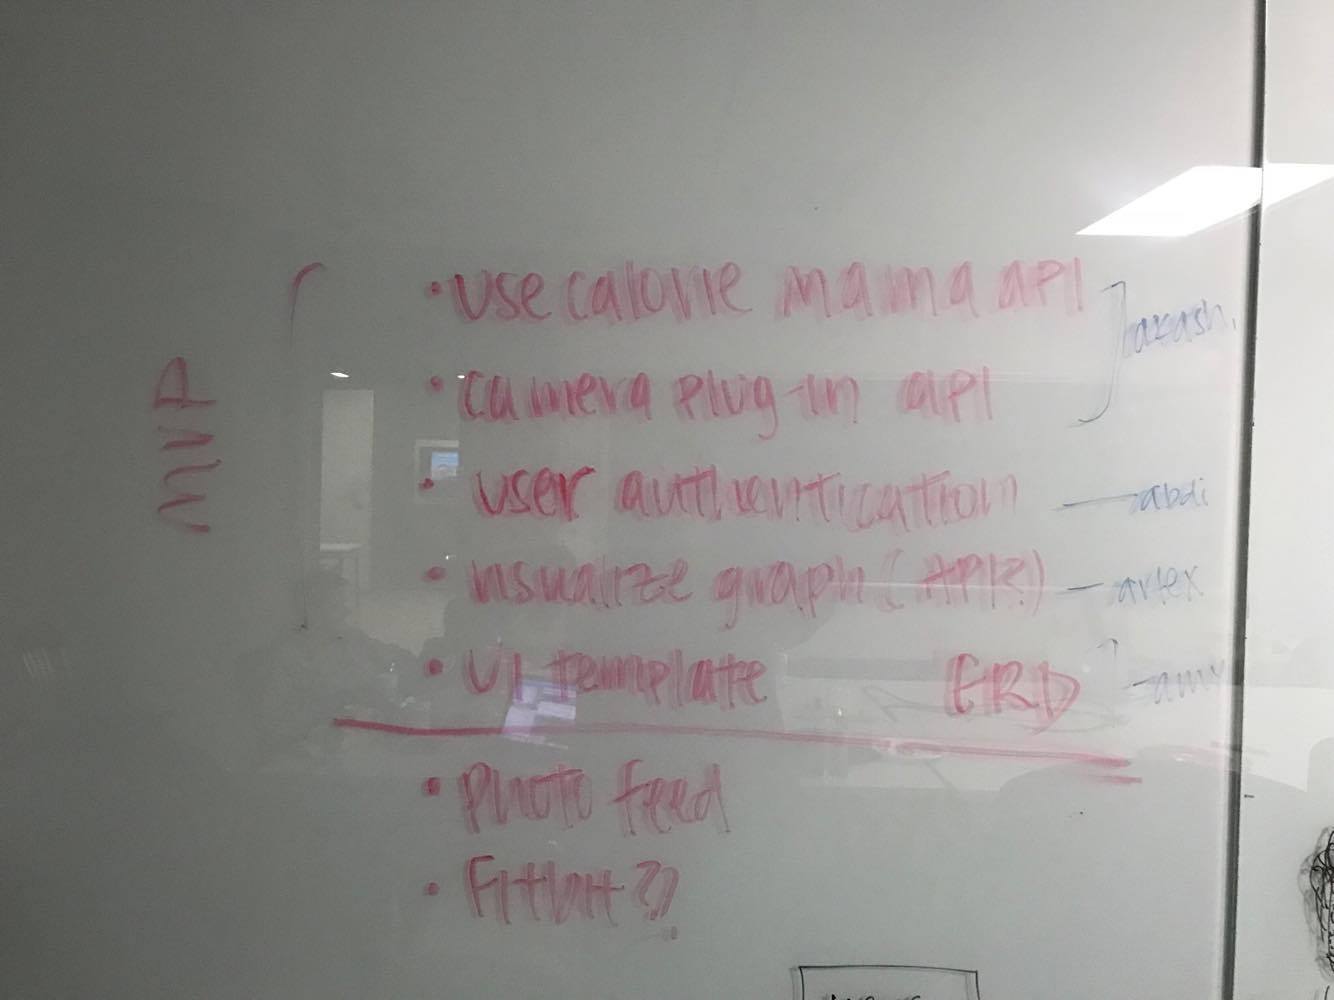 MVP
• use calorie mama api
akash
• camera plug-in api
• user authentication — abdi
• visualize graph (API?) — artex
• UI template ERD
• photo feed
• Fitbit?